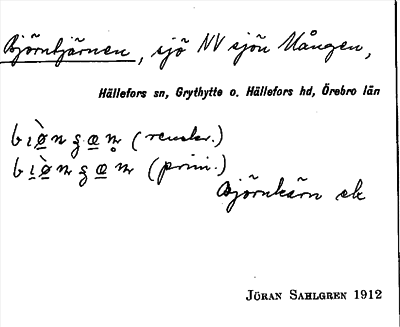 Björntjärnen, sjö NV sjön Mången,
Hällefors sn, Grythytte o. Hällefors hd, Örebro län
(renskr.)
(prim.)
Björnkärn ek
JÖRAN SAHLGREN 1912